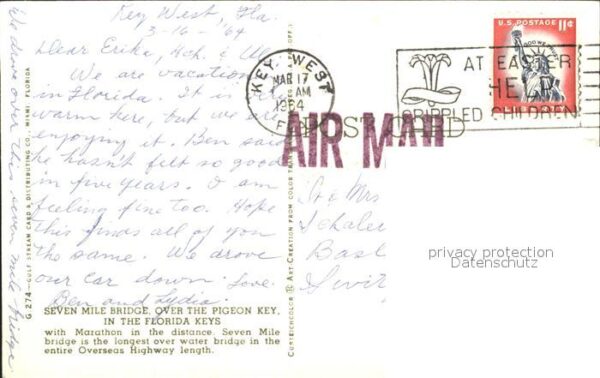 Key West, Fla.
3-16-'64
Dear Erika, &
We are vacation
in Florida. It is
warm here, but we are
enjoying it. Ben said
he hasn't felt so good
in five years. I am
feeling fine too. Hope
this finds all of you
the same. We drove
our car down. Love.
Ben and Lydia.
We drove over this seven mile bridge
SEVEN MILE BRIDGE, OVER THE PIGEON KEY,
IN THE FLORIDA KEYS
with Marathon in the distance. Seven Mile
bridge is the longest over water bridge in the
entire Overseas Highway length.
G 274—GULF STREAM CARD & DISTRIBUTING CO., MIAMI, FLORIDA
CURTEICHCOLOR ® ART CREATION FROM COLOR TRANS
KEY WEST
MAR 17
AM
1964
AT EASTER
HELP
CRIPPLED CHILDREN
U.S. POSTAGE 11¢
LIBERTY
POST CARD
AIR MAIL
& Mrs
Basl
Swit
privacy protection
Datenschutz